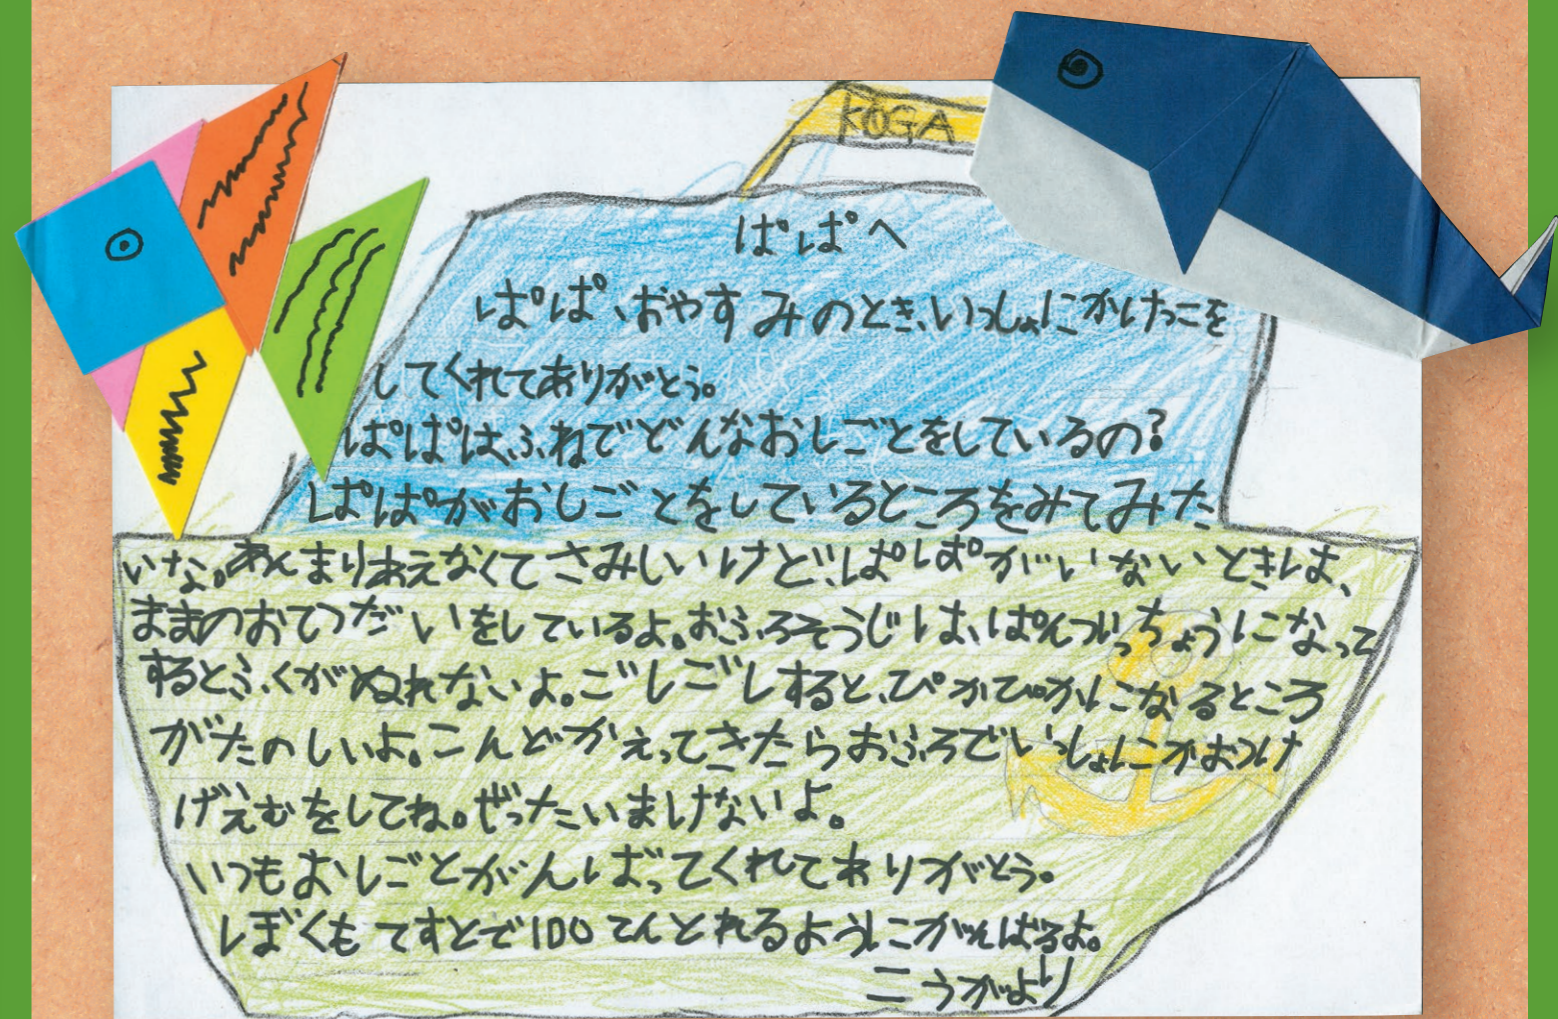 KOGA
ぱぱへ
ぱぱ、おやすみのとき、いっしょにかけっこを
してくれてありがとう。
ぱぱは、ふねでどんなおしごとをしているの?
ぱぱがおしごとをしているところをみてみた
いな。あんまりあえなくてさみしいけど、ぱぱがいないときは、
ままのおてつだいをしているよ。おふろそうじは、ぱんついっちょうになって
するとふくがぬれないよ。ごしごしすると、ぴかぴかになるところ
がたのしいよ。こんどかえってきたらおふろでいっしょにかおつけ
げえむをしてね。ぜったいまけないよ。
いつもおしごとがんばってくれてありがとう。
ぼくもてすとで100てんとれるようにがんばるよ。
こうがより